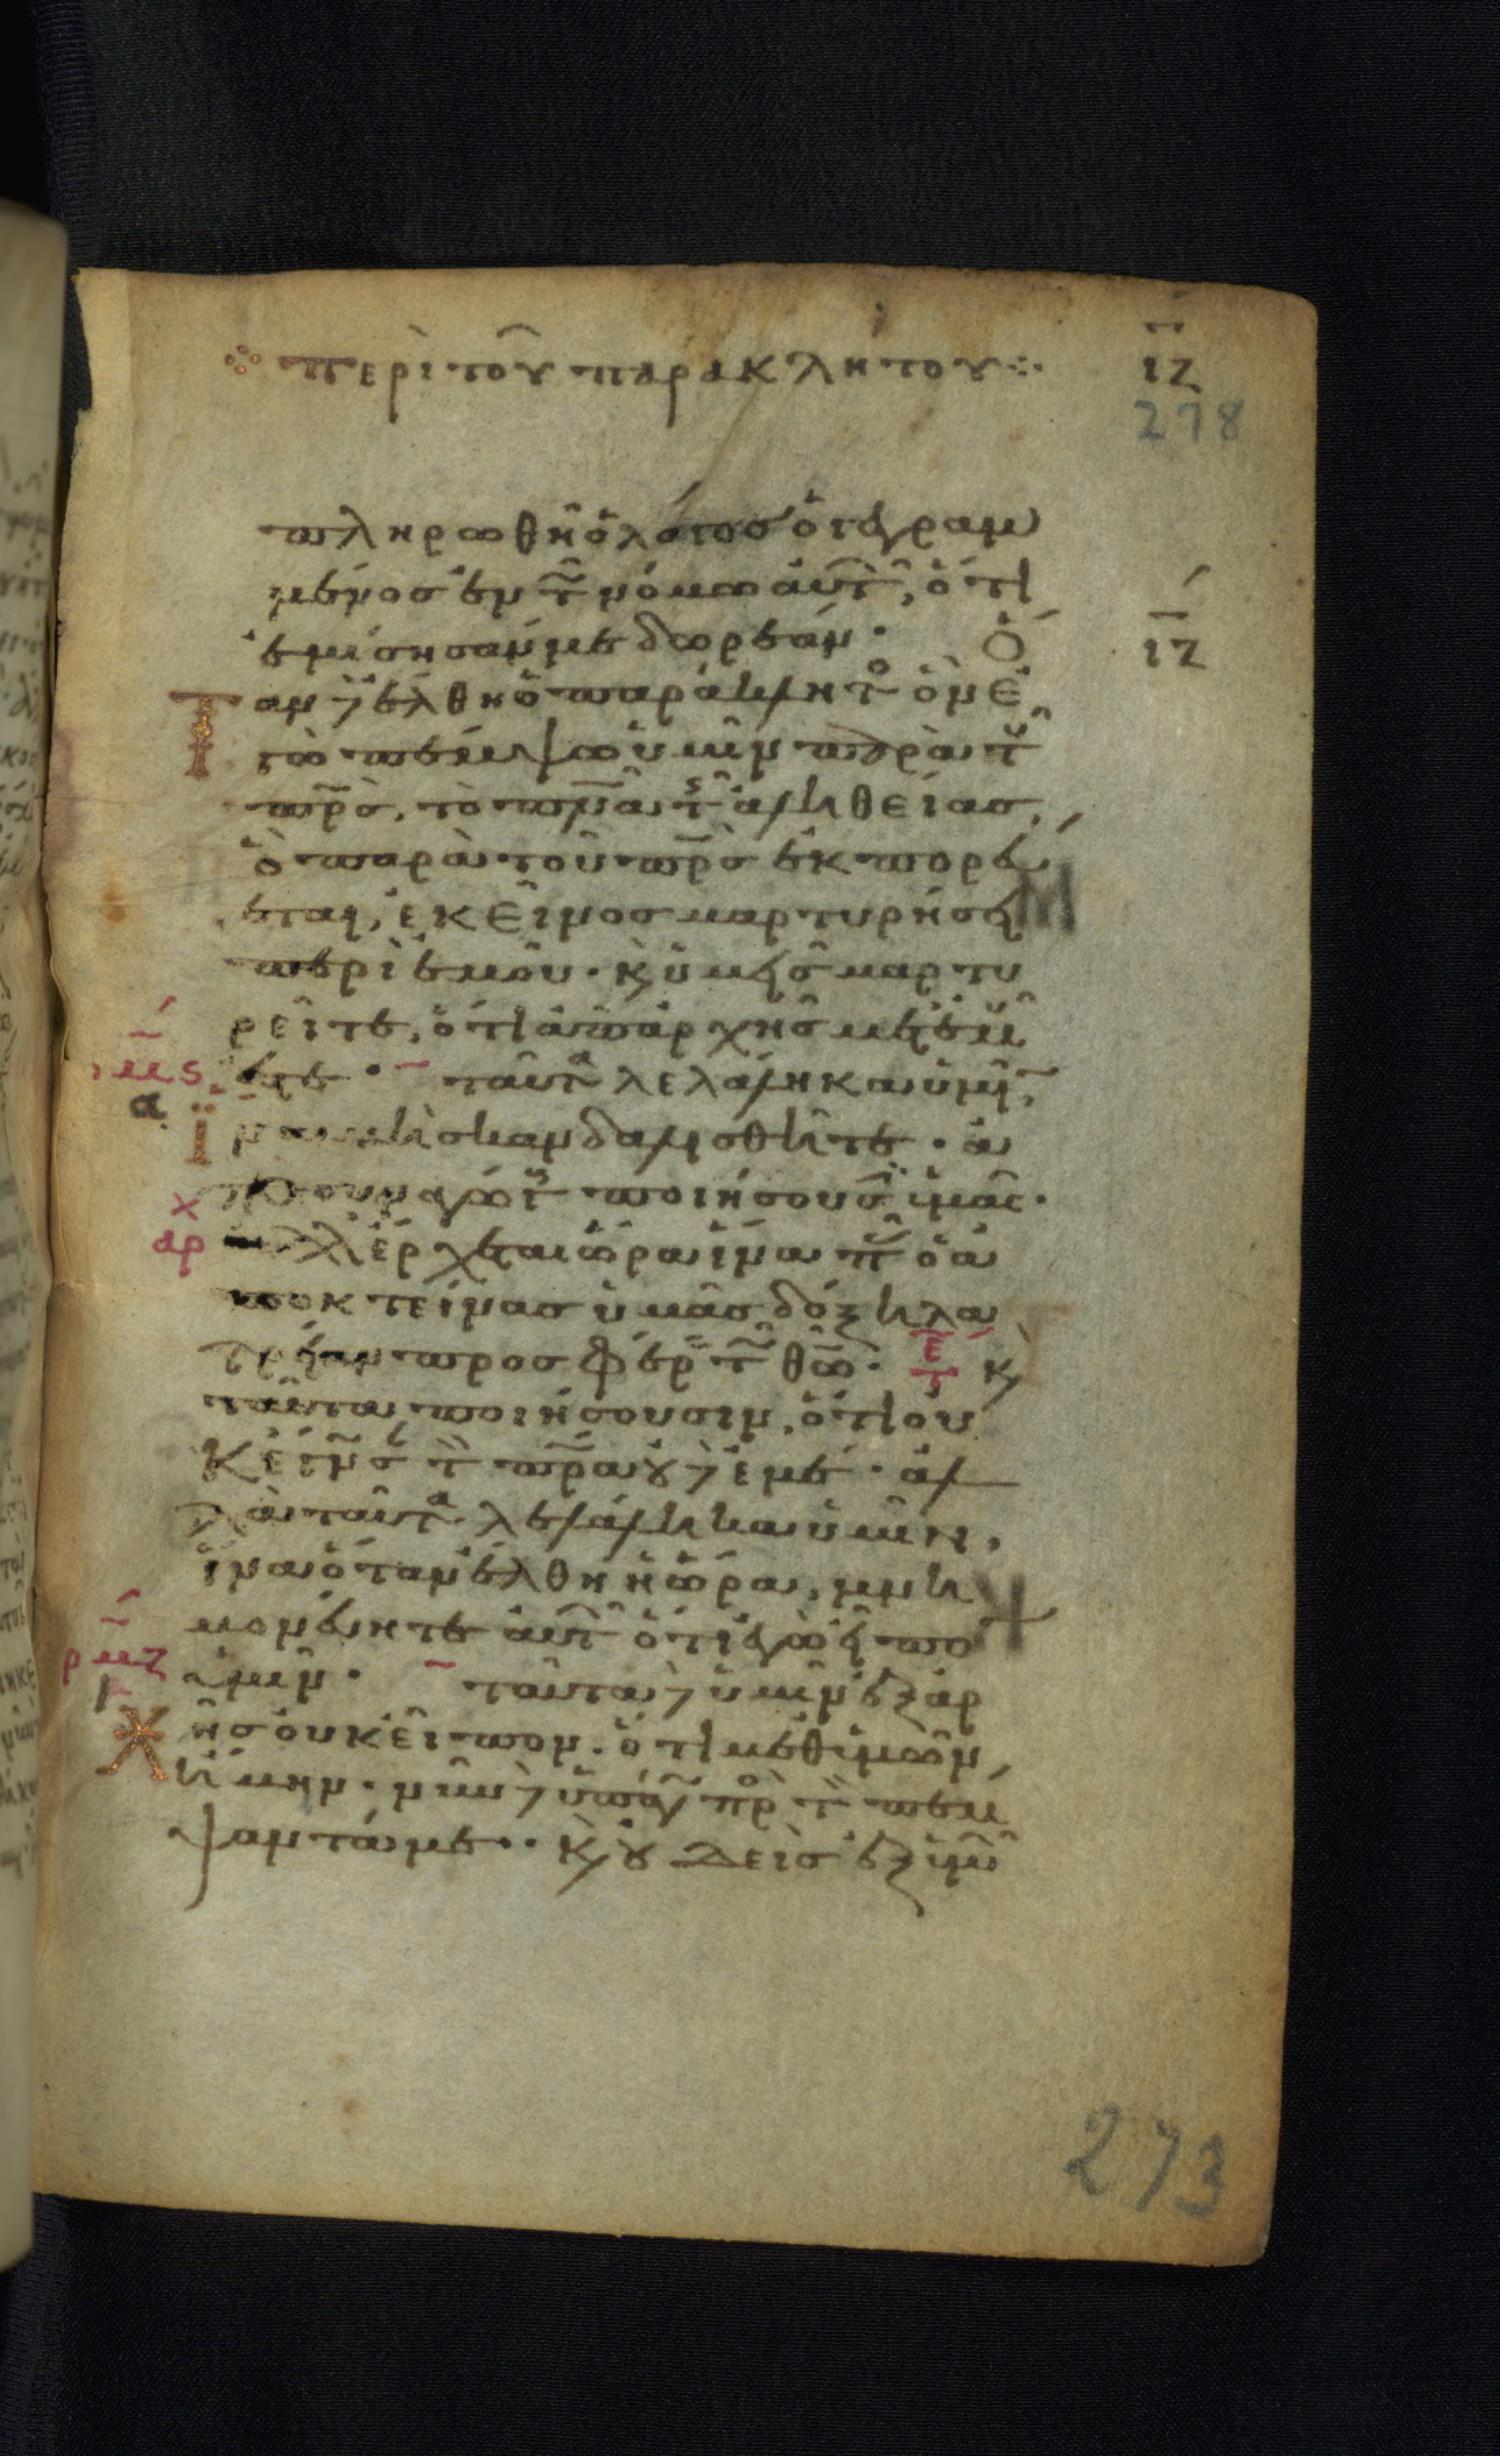 περὶ τοῦ παρακλήτου ιζ
278
πληρωθῆ ὁ λόγος ὁ γεγραμ
μένος ἐν τ νόμω αὐτ, ὅτι
ἐμίσησάν με δωρεάν. Ὅ ιζ
ταν δὲ ἔλθη ὁ παράκλητο ὃν ἐ
γὼ πέμψω ὑμῖν παρὰ τοῦ
πρς, τὸ πνα τῆς ἀληθείας,
ὃ παρὰ τοῦ πρς ἐκπορεύ
εται, ἐκεῖνος μαρτυρήσει
περὶ ἐμοῦ. κ ὑμεῖς μαρτυ
ρεῖτε, ὅτι ἀπ ἀρχῆς μετ ἐμοῦ
ρμς ἐστε. ταῦτα λελάληκα ὑμῖ,
α ἵνα μὴ σκανδαλισθῆτε. ἀ
ποσυναγώγ ποιήσουσιν ὑμᾶς.
χ
αρ ἀλλ ἔρχεται ὥρα ἵνα π ὁ ἀ
ποκτείνας ὑμᾶς δόξη λα
τρείαν προσφέρ τ θῶ. τε κ
ταῦτα ποιήσουσιν, ὅτι οὐ
κ ἔγνωσ τ πρα οὐδὲ ἐμέ. ἀλ
λὰ ταῦτα λελάληκα ὑμῖν,
ἵνα ὅταν ἔλθη ἡ ὥρα, μνη
μονεύητε αὐτ ὅτι ἐγὼ εἶπο
ρμζ ὑμῖν. ταῦτα δὲ ὑμῖν ἐξ ἀρ
χῆς οὐκ εἶπον. ὅτι μεθ ὑμῶν
ἤμην. νῦν δὲ ὑπάγ πρ τ πέμ
ψαντά με. κ οὐδεὶς ἐξ ὑμῶ
273